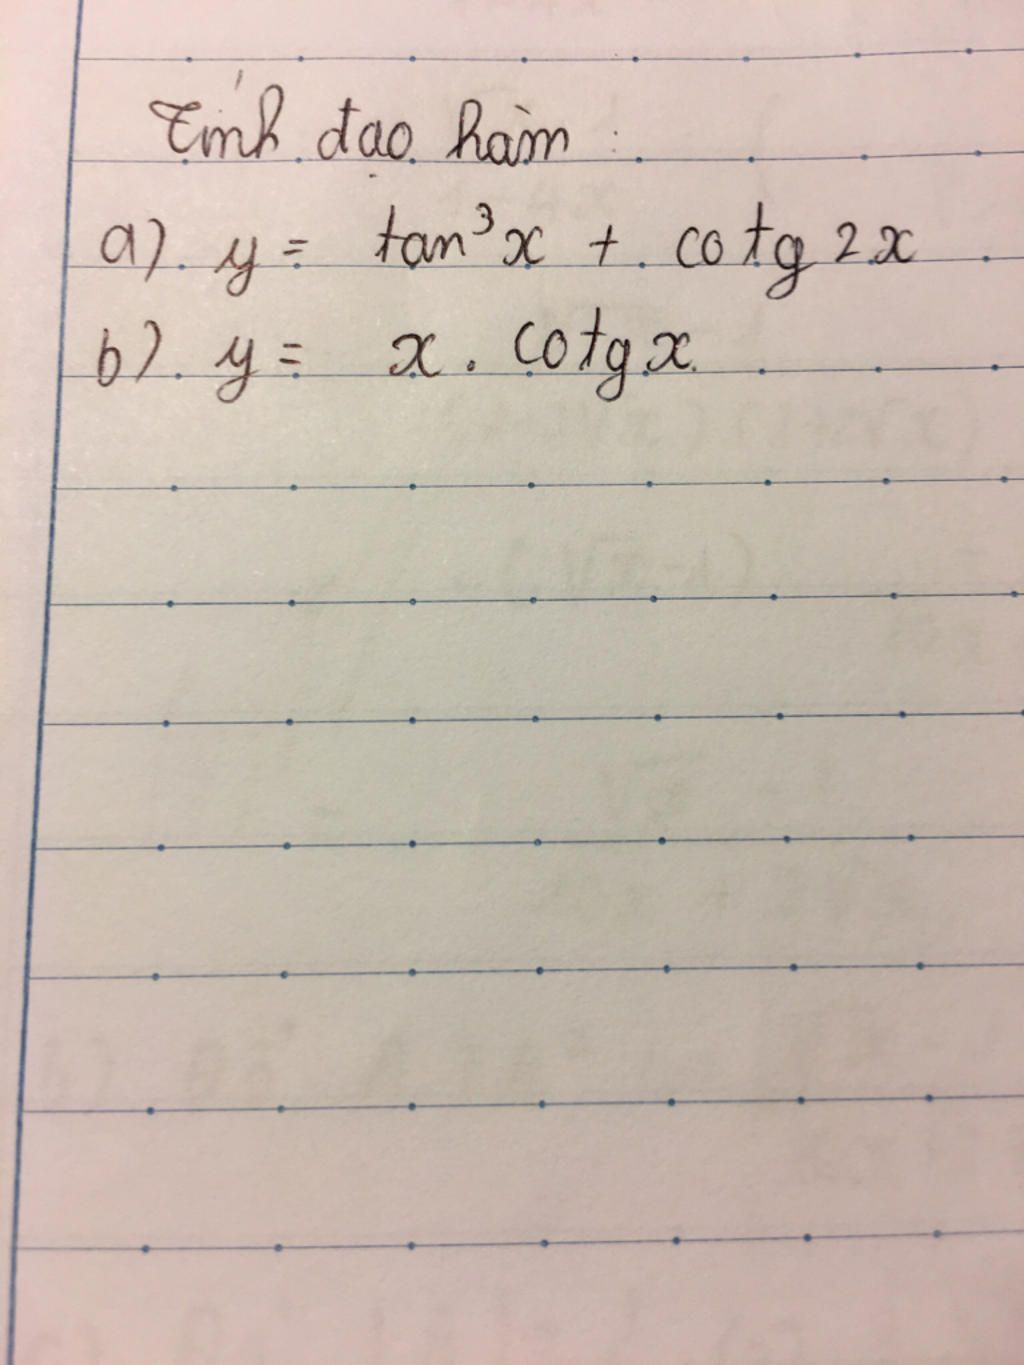 Tính đạo hàm :
a). y = tan³x + cotg 2x
b). y = x . cotg x